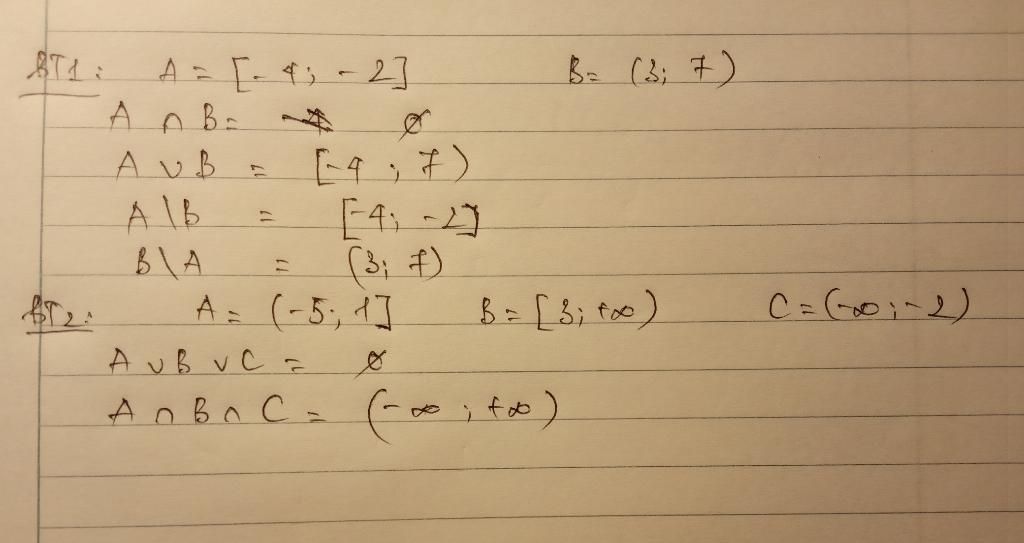 BT1: A = [-4; -2] B = (3; 7)
A ∩ B = ∅
A ∪ B = [-4; 7)
A \ B = [-4; -2]
B \ A = (3; 7)
BT2: A = (-5; 1] B = [3; +∞) C = (-∞; -2)
A ∪ B ∪ C = ∅
A ∩ B ∩ C = (-∞; +∞)